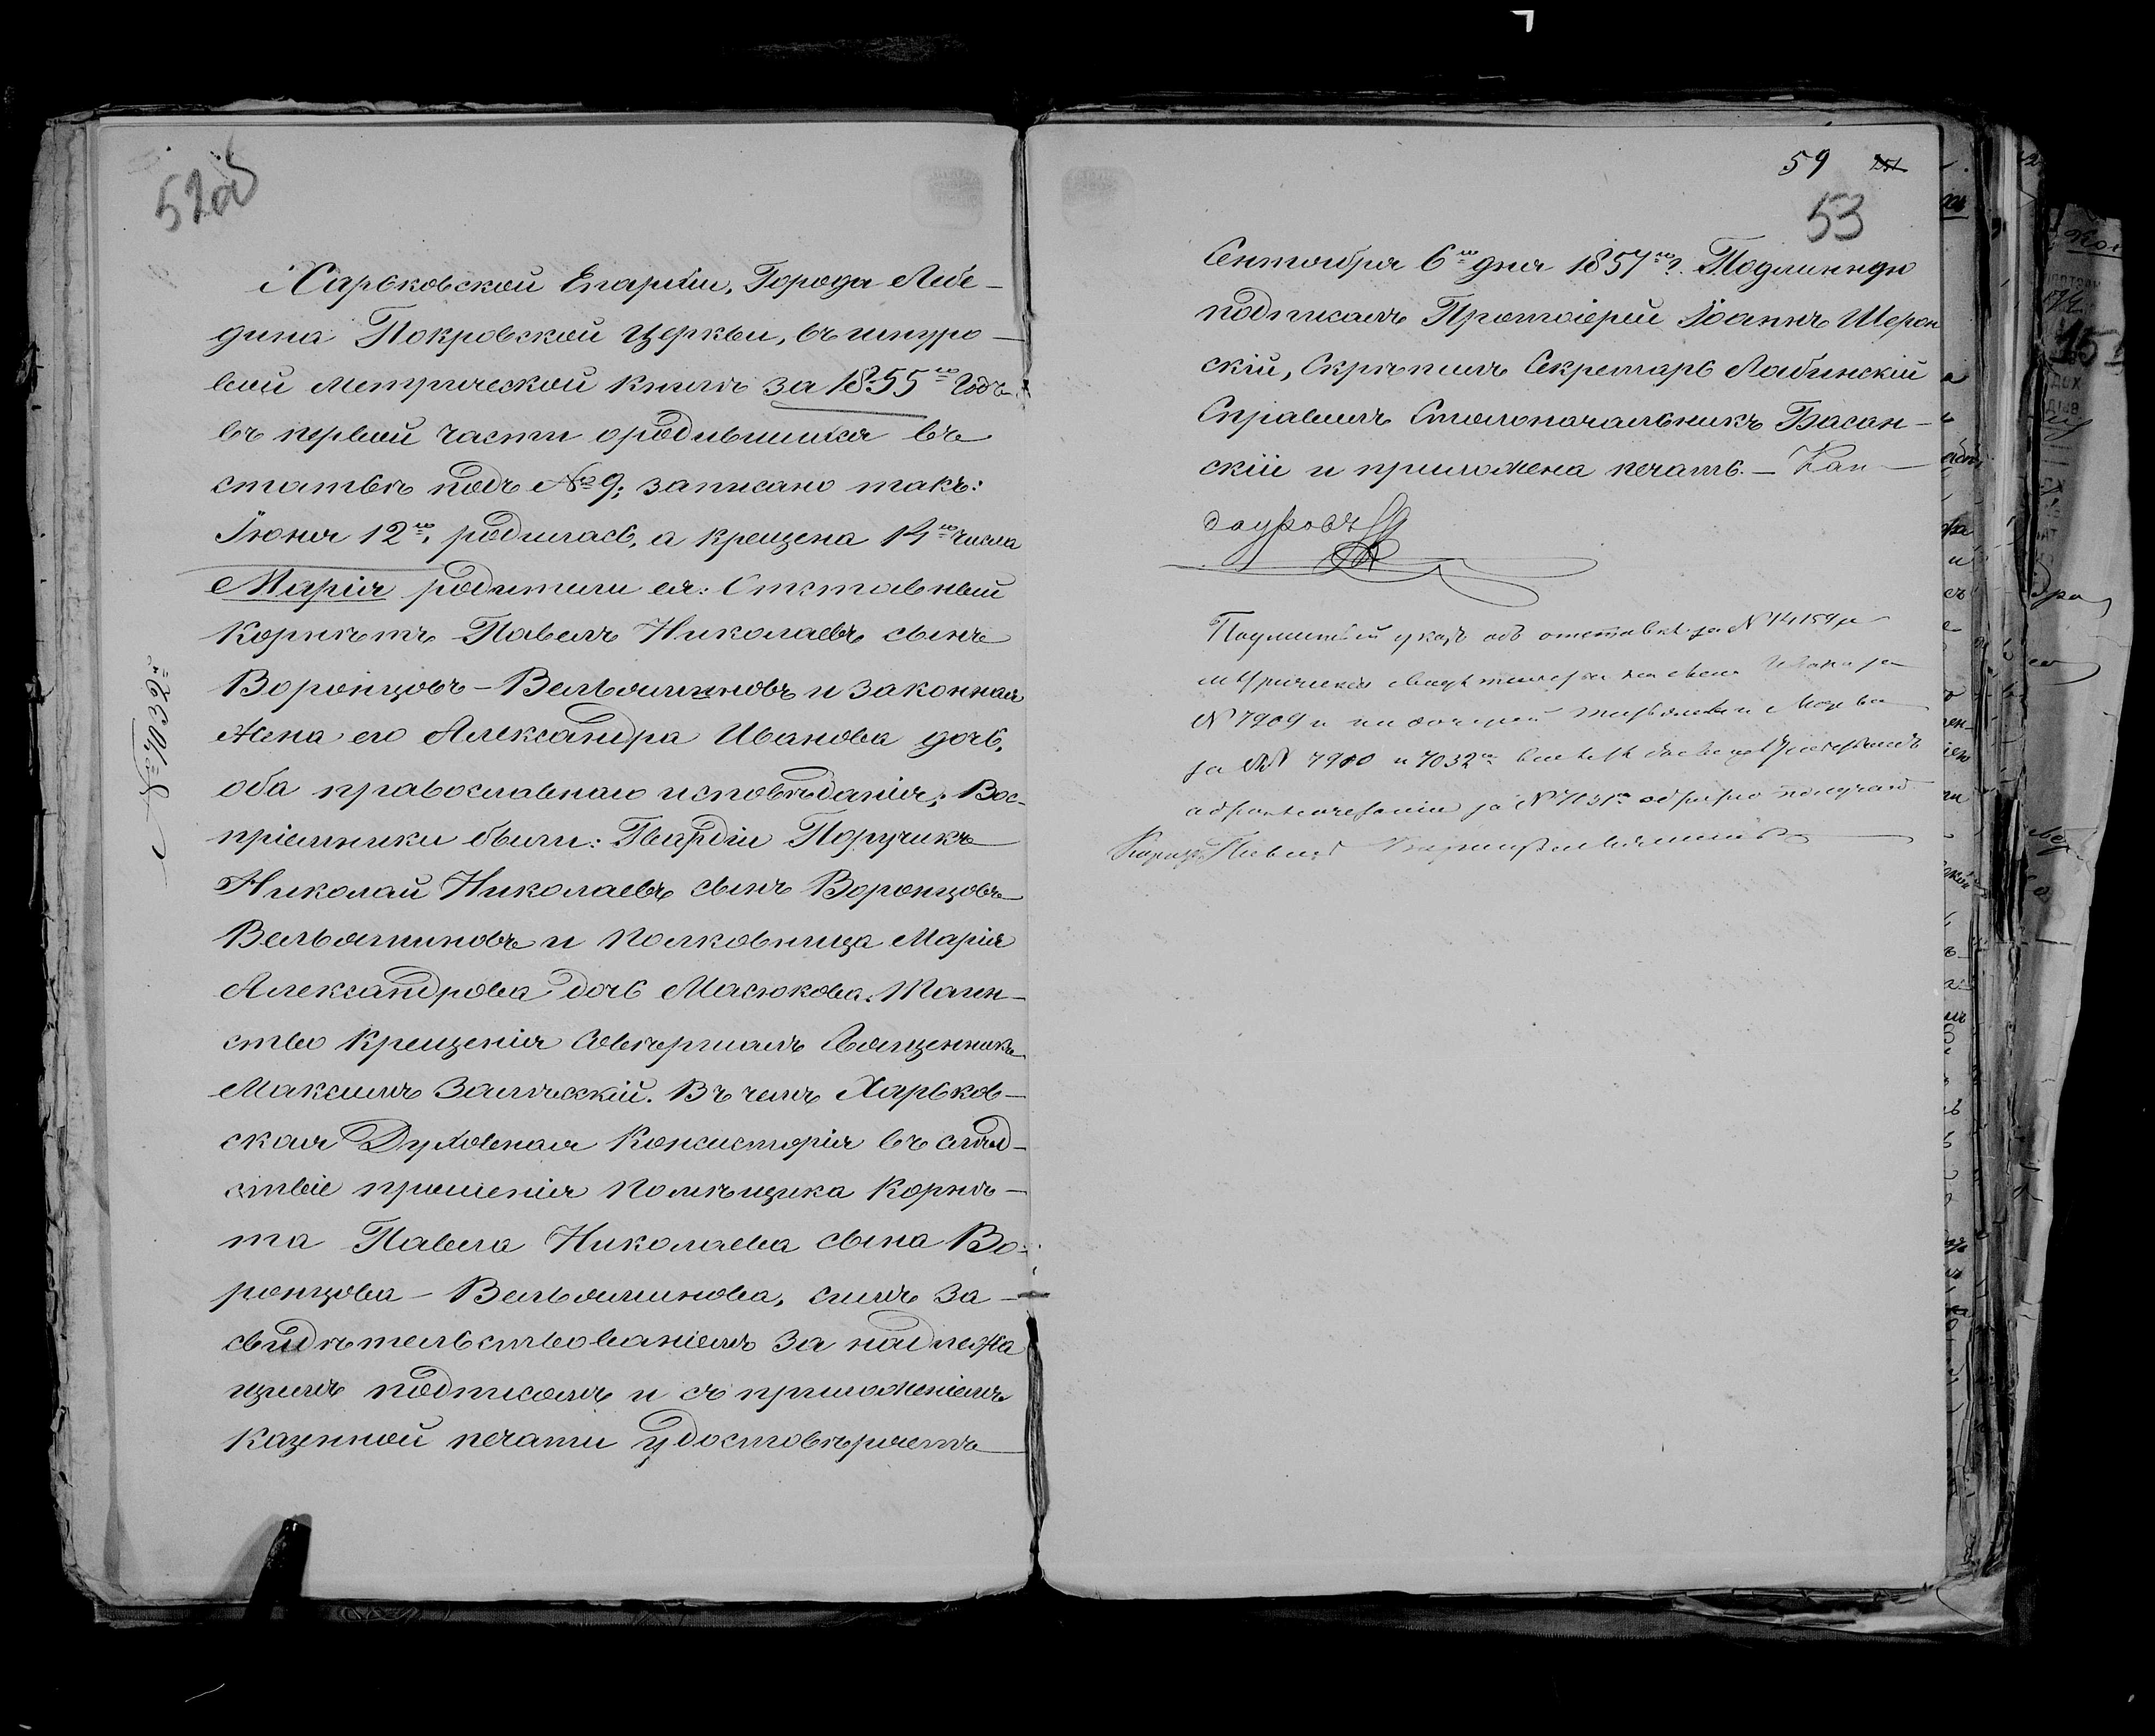 52об
Харьковской Епархіи, Города Лебе-
дина Покровской Церкви, въ шнуро-
вой метрической книгѣ за 1855го Годъ
въ первой части ородившихся въ
статьѣ подъ № 9; записано такъ:
Іюня 12го, родилась, а крещена 14го числа
Марія родители ея: Отставный
Корнетъ Павелъ Николаевъ сынъ
Воронцовъ-Вельяминовъ и законная
жена его Александра Иванова дочь,
оба православнаго исповѣданія; Вос-
пріемники были: Гвардіи Поручикъ
Николай Николаевъ сынъ Воронцовъ
Вельяминовъ и Полковница Марія
Александрова дочь Масюкова. Таин-
ство Крещенія Совершалъ Священникъ
Максимъ Залѣсскій. Въ чемъ Харьков-
ская Духовная Консисторія въ слѣд-
ствіе прошенія Помѣщика Корнѣ-
та Павела Николаева сына Во-
ронцова-Вельяминова, симъ за-
свидѣтельствованіемъ за надлежа
щимъ подписомъ и съ приложеніемъ
казенной печати удостовѣряетъ
№ 7032й
59
53
Сентября 6го дня 1857го г. Подлинную
подписалъ Протоіерей Іоаннъ Шерон
скій, Скрѣпилъ Секретарь Лабинскій
Справилъ Столоначальникъ Басан-
скій и приложена печать. — Кан-
дауровъ
Подлинный указъ объ отставкѣ за № 14159 и
метрическія свидѣтельства на сына Ивана за
№ 7909 и на дочерей и Марью
за №№ 7910 и 7032м
за № 7031м обратно получилъ
Корнетъ Павелъ Воронцовъ Вельяминовъ